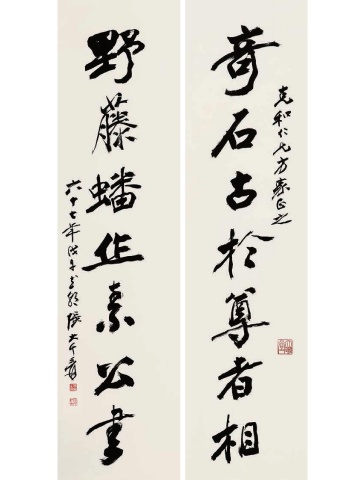 奇石古於尊者相
克和仁兄方家正之
野藤蟠作素公書
六十七年戊午張大千爰